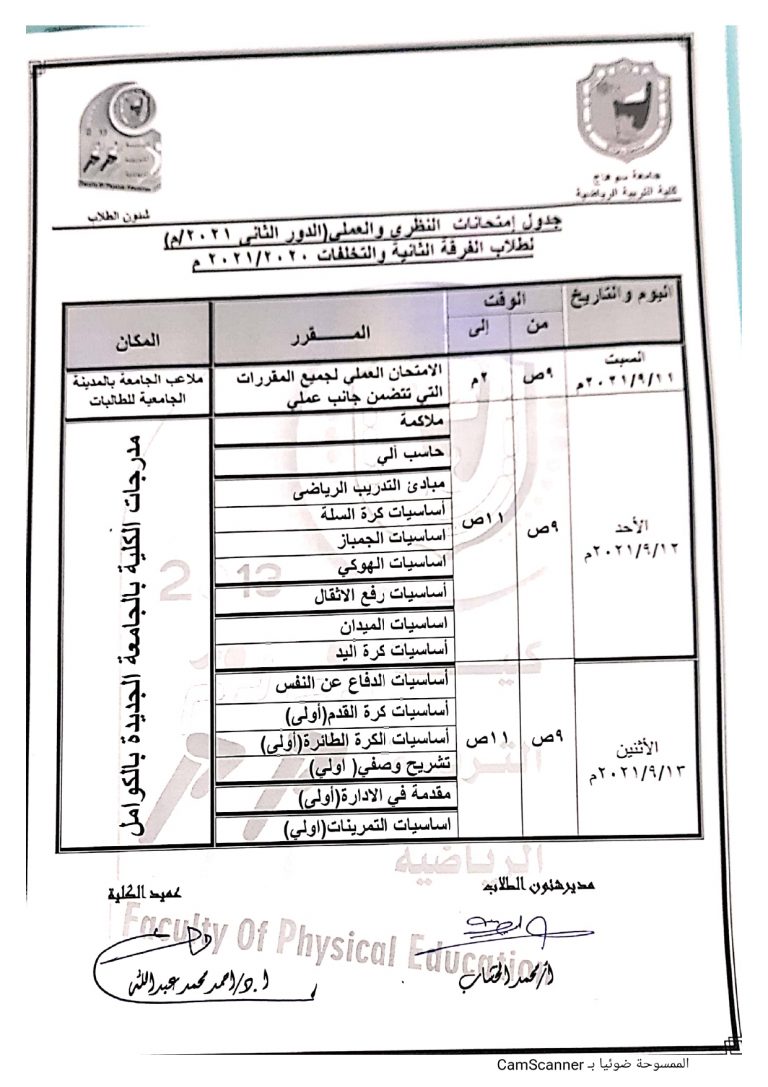 جامعة سوهاج
كلية التربية الرياضية
شئون الطلاب
Faculty Of Physical Education
جدول إمتحانات النظري والعملي(الدور الثانى ٢٠٢١/م)
لطلاب الفرقة الثانية والتخلفات ٢٠٢١/٢٠٢٠ م
اليوم والتاريخ
الوقت
من
إلى
المـــــقرر
المكان
السبت
٢٠٢١/٩/١١م
٩ص
٢م
الامتحان العملي لجميع المقررات
التي تتضمن جانب عملي
ملاعب الجامعة بالمدينة
الجامعية للطالبات
الأحد
٢٠٢١/٩/١٢م
٩ص
١١ص
ملاكمة
حاسب ألي
مبادئ التدريب الرياضى
أساسيات كرة السلة
اساسيات الجمباز
أساسيات الهوكي
أساسيات رفع الاثقال
اساسيات الميدان
أساسيات كرة اليد
مدرجات الكلية بالجامعة الجديدة بالكوامل
الأثنين
٢٠٢١/٩/١٣م
٩ص
١١ص
أساسيات الدفاع عن النفس
أساسيات كرة القدم(أولى)
أساسيات الكرة الطائرة(أولى)
تشريح وصفي( اولي)
مقدمة في الادارة(أولى)
اساسيات التمرينات(اولي)
2013
الرياضية
Faculty Of Physical Education
مديرشئون الطلاب
عميد الكلية
أ/محمد الخشاب
ا.د/احمد محمد عبدالله
الممسوحة ضوئيا بـ CamScanner